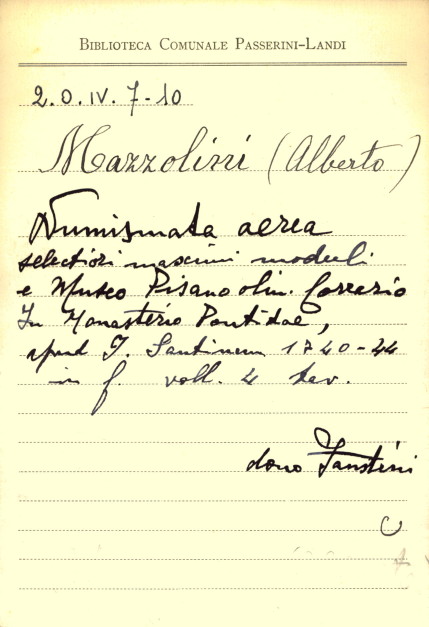 BIBLIOTECA COMUNALE PASSERINI-LANDI
2.O.IV.7-10
Mazzolini (Alberto)
Numismata aerea
selectiori maximi moduli
e Museo Pisano olim. Corrario
In Monasterio Pontidae,
apud J. Santinum 1740-44
in f. voll. 4 lev.
dono Faustini
C